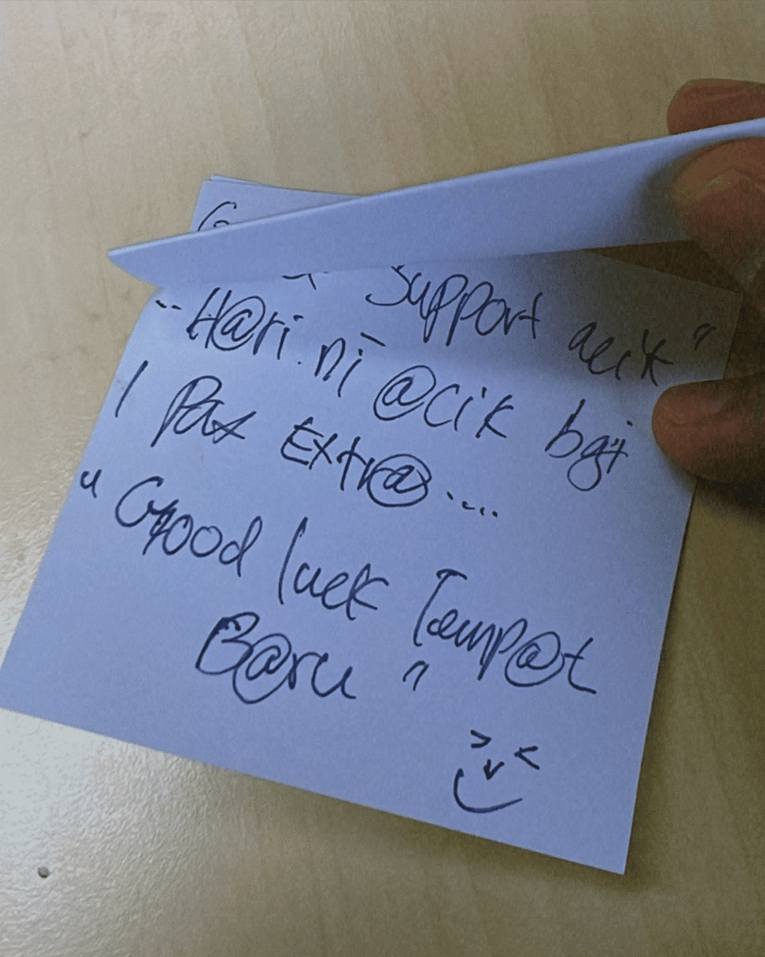 Support acik"
"H@ri ni @cik bgi
1 Pax Extr@....
"Good luck Temp@t
B@ru"